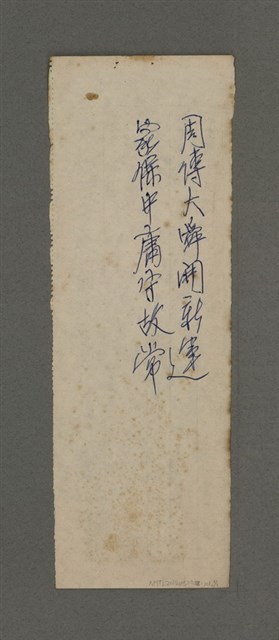 周傳大舜開新運
家保中庸守故常